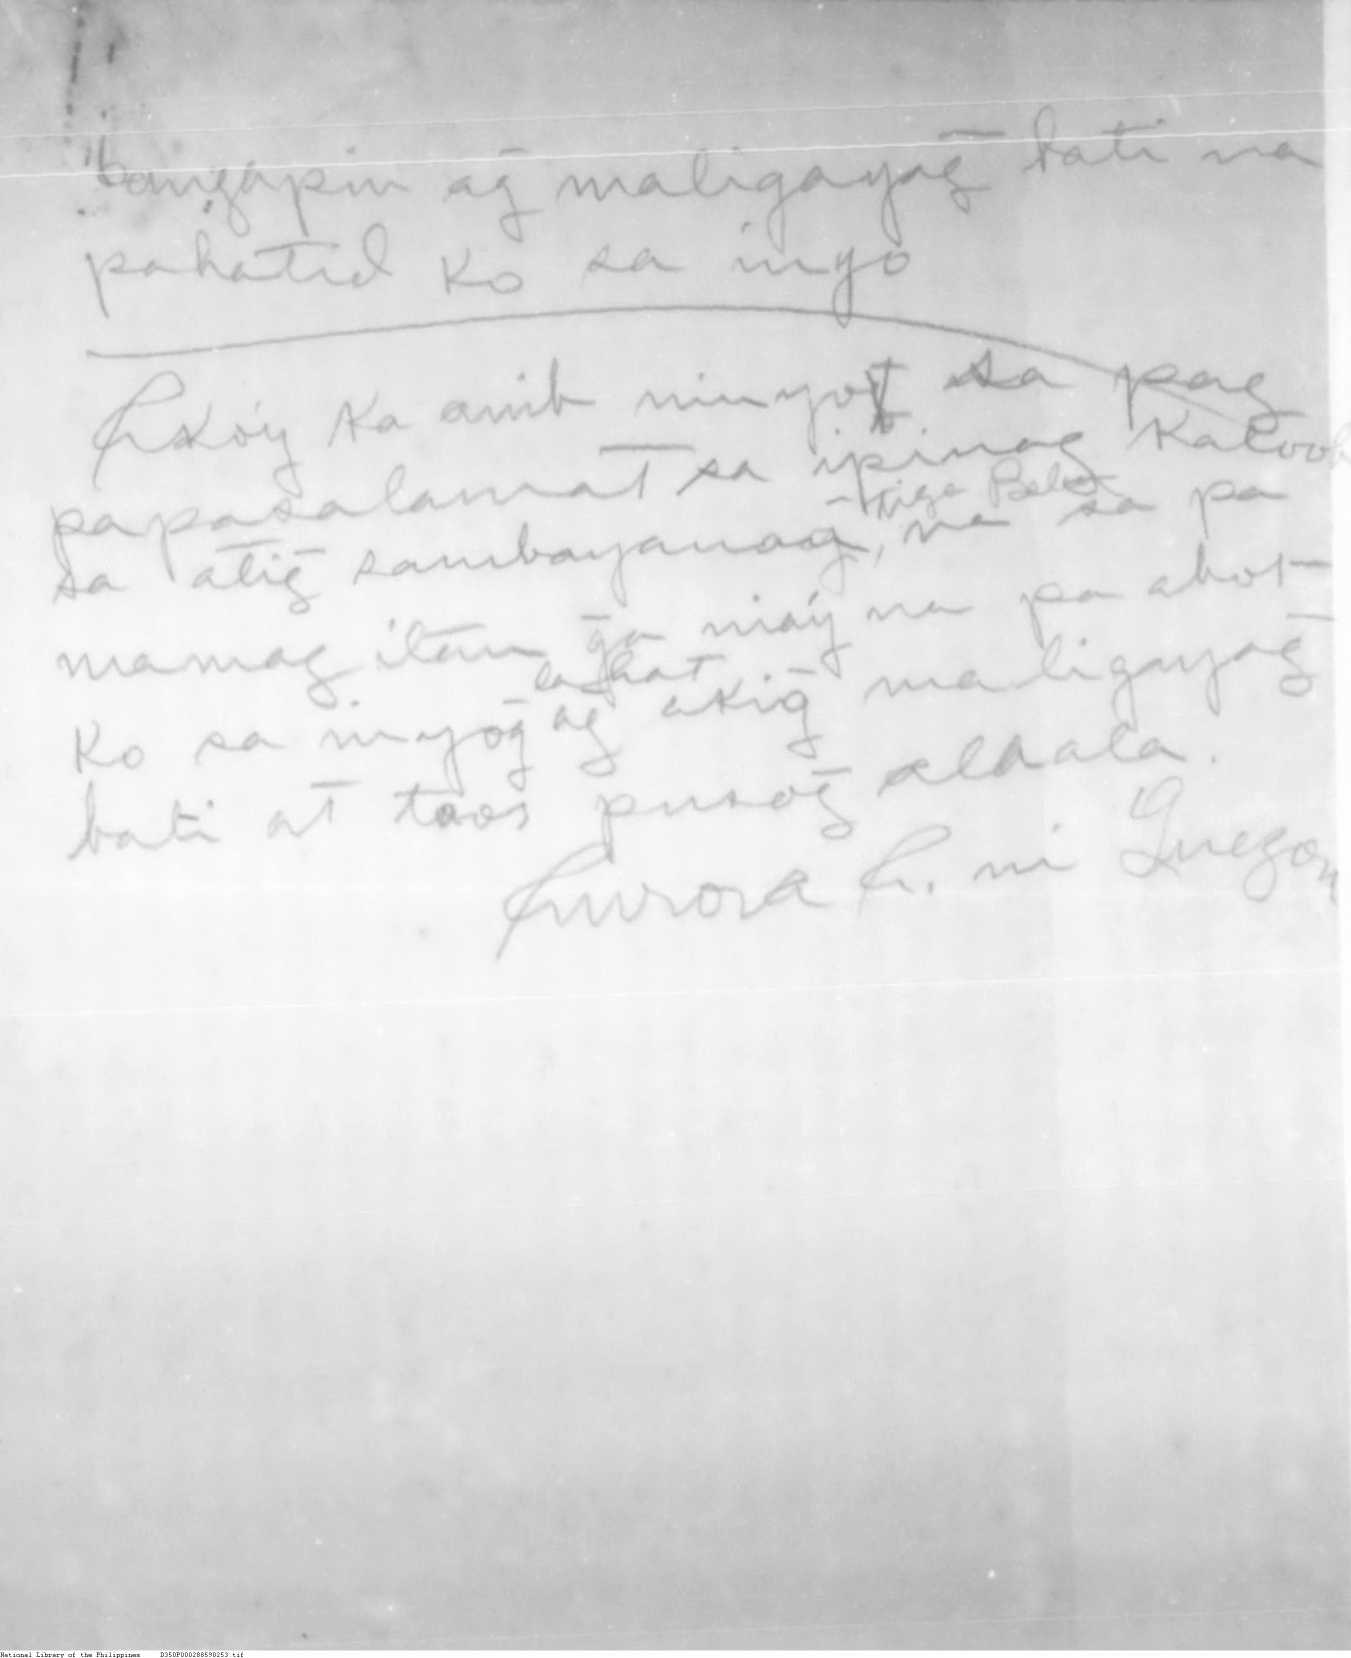 tangapin ag̃ maligayag̃ bati na
pahatid ko sa inyo
Ako'y ka anib ninyo sa pag
papasalamat sa ipinag kaloob
sa atig̃ sambayanag̃, na sa pa
mamag itan g̃a niá'y na pa abot
lahat
ko sa inyog̃ ag̃ akig̃ maligayag̃
bati at taos pusog̃ alaala.
Aurora A. ni Quezon
National Library of the Philippines D350P000288590253.tif